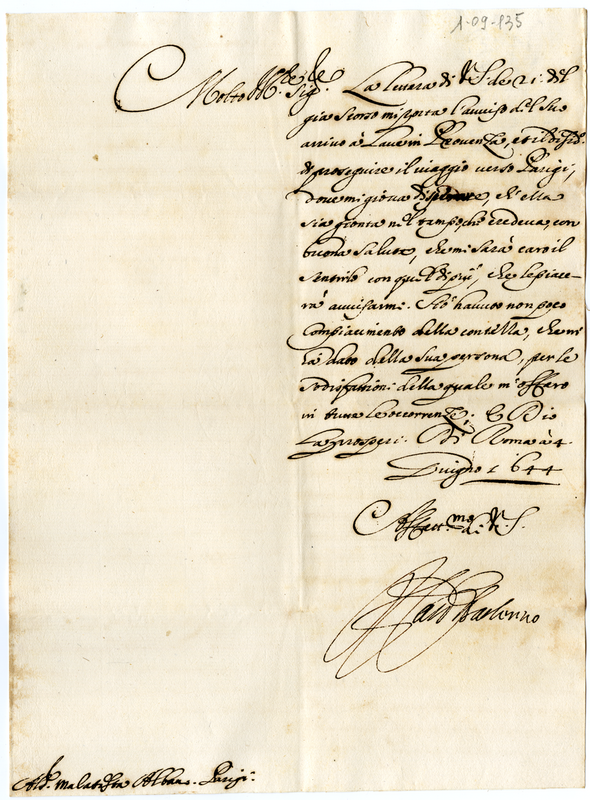 1-09-135
Molto Ill.re Sig.re La lettera di V.S. de 21. del
già scorso mi porta l'avviso del suo
arrivo à in Provenza, et il
di proseguire il viaggio verso Parigi,
dove mi giova, ch'ella
sia gionta nel tempo, che credeva, con
buona salute, che mi sarà caro il
sentirlo con quel di più, che le piace-
rà avvisarmi. Hò havuto non poco
compiacimento della contezza, che mi
hà dato della sua persona, per le
sodisfattioni della quale m'offero
in tutte le occorrenze. E Dio
La prosperi. Di Roma à 4.
Giugno 1644
Affett.mo di V.S.

Malatesta Albani. Parigi.